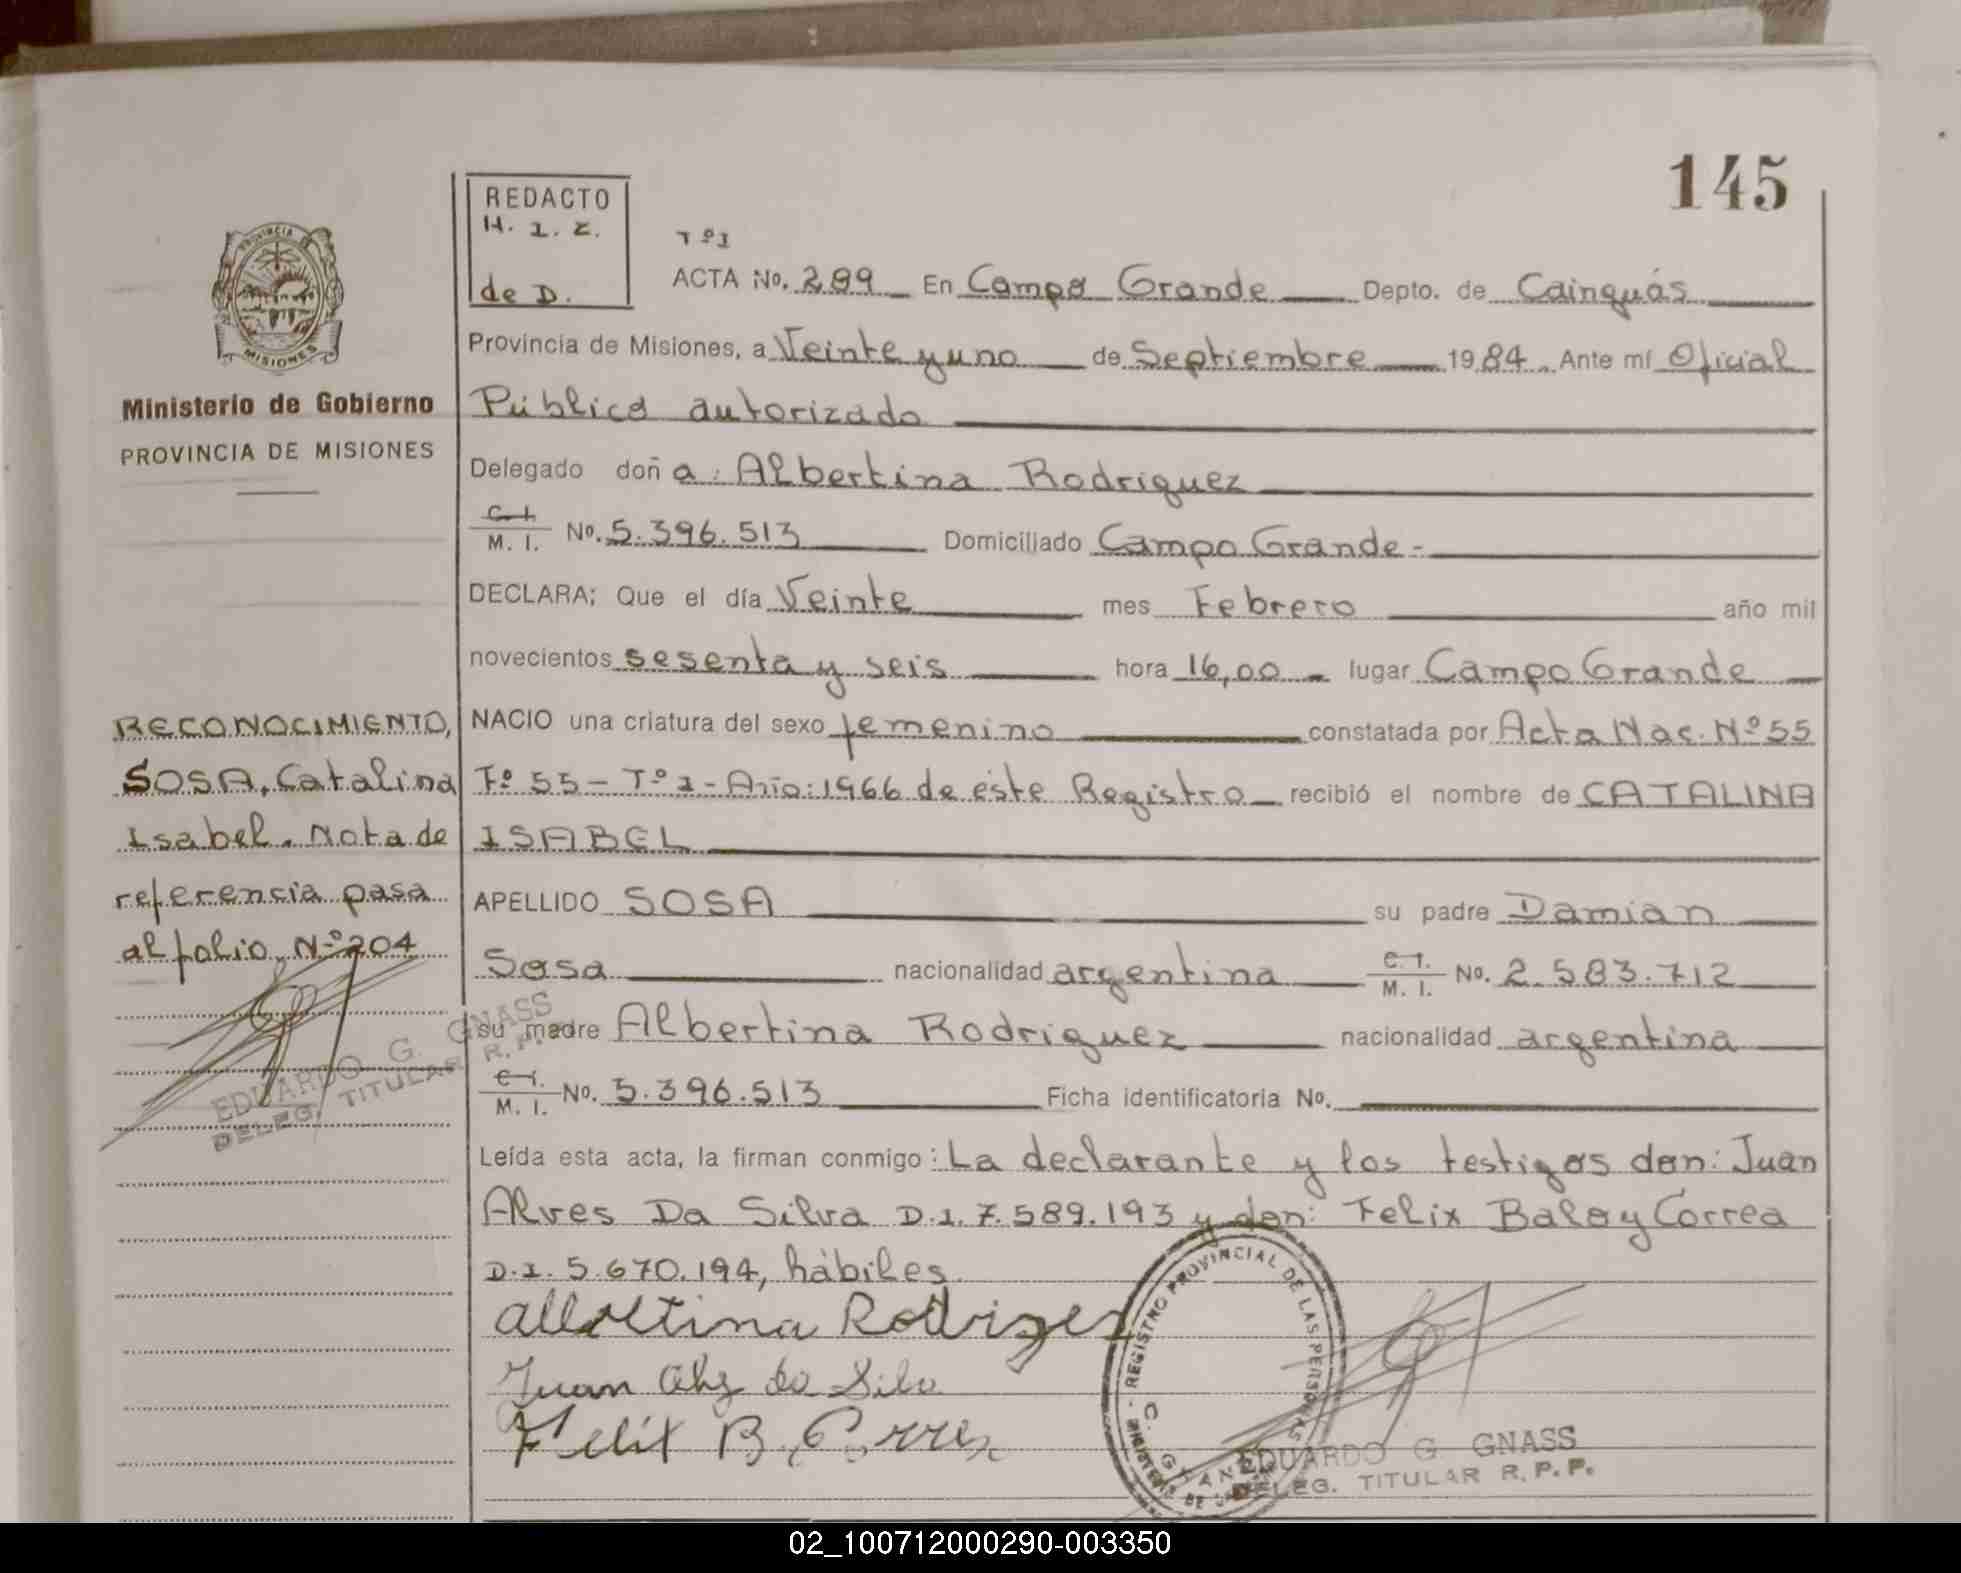 145
REDACTO
H. I. E.
de D.
PROVINCIA DE
MISIONES
Ministerio de Gobierno
PROVINCIA DE MISIONES
TºI
ACTA No. 289 En Campo Grande Depto. de Cainguás
Provincia de Misiones, a Veinte y uno de Septiembre 1984. Ante mí Oficial
Público autorizado
Delegado doña: Albertina Rodriguez
C. I. M. I. No. 5.396.513 Domiciliado Campo Grande-
DECLARA; Que el día Veinte mes Febrero año mil
novecientos sesenta y seis hora 16,00 lugar Campo Grande
NACIO una criatura del sexo femenino constatada por Acta Nac. Nº 55
Fº 55 - Tº I - Año: 1966 de éste Registro recibió el nombre de CATALINA
ISABEL
APELLIDO SOSA su padre Damian
Sosa nacionalidad argentina C. I. M. I. No. 2.583.712
su madre Albertina Rodriguez nacionalidad argentina
C. I. M. I. No. 5.396.513 Ficha identificatoria No.
Leída esta acta, la firman conmigo: La declarante y los testigos don: Juan
Alves Da Silva D.I. 7.589.193 y don: Felix Baloy Correa
D.I. 5.670.194, hábiles.
RECONOCIMIENTO,
SOSA, Catalina
Isabel. Nota de
referencia pasa
al folio Nº 204
EDUARDO G. GNASS
DELEG. TITULAR R. P. P.
Felix B. Correa
REGISTRO PROVINCIAL DE LAS PERSONAS
EDUARDO G. GNASS
DELEG. TITULAR R. P. P.
02_100712000290-003350